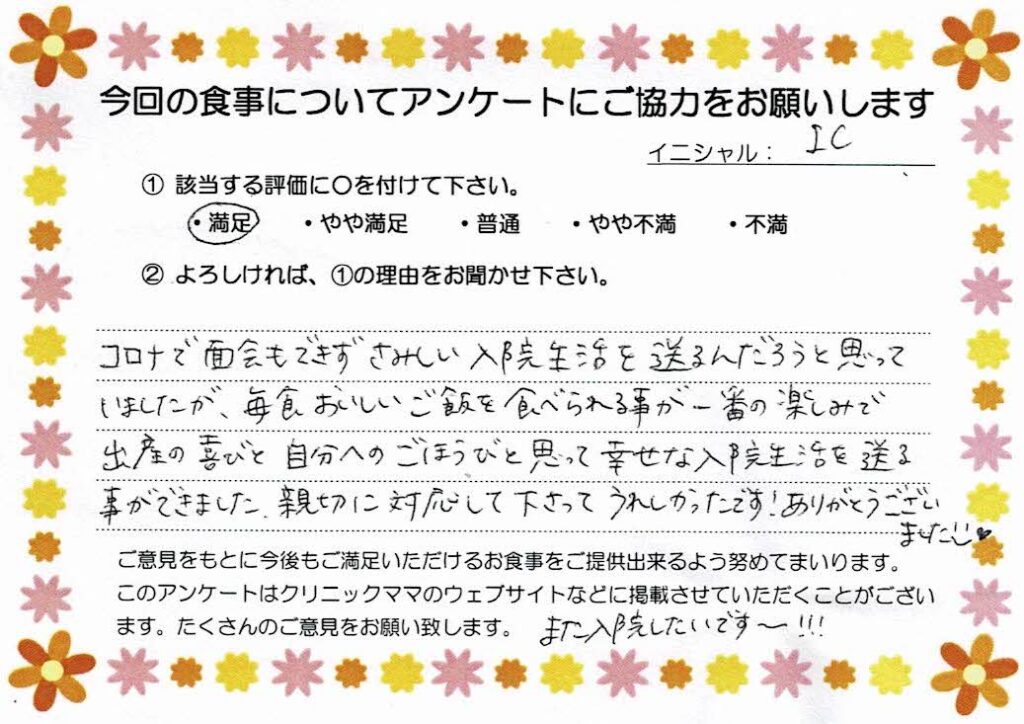 今回の食事についてアンケートにご協力をお願いします
イニシャル： IC
① 該当する評価に〇を付けて下さい。
・満足 ・やや満足 ・普通 ・やや不満 ・不満
② よろしければ、①の理由をお聞かせ下さい。
コロナで面会もできずさみしい入院生活を送るんだろうと思って
いましたが、毎食おいしいご飯を食べられる事が一番の楽しみで
出産の喜びと自分へのごほうびと思って幸せな入院生活を送る
事ができました。親切に対応して下さってうれしかったです！ありがとうござい
ました!!♥
ご意見をもとに今後もご満足いただけるお食事をご提供出来るよう努めてまいります。
このアンケートはクリニックママのウェブサイトなどに掲載させていただくことがござい
ます。たくさんのご意見をお願い致します。 また入院したいです〜!!!